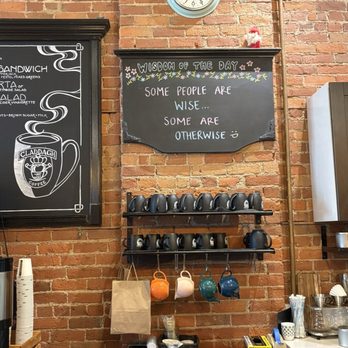 SANDWICH
SALAD
CLADDAGH
COFFEE
WISDOM OF THE DAY
SOME PEOPLE ARE
WISE...
SOME ARE
OTHERWISE